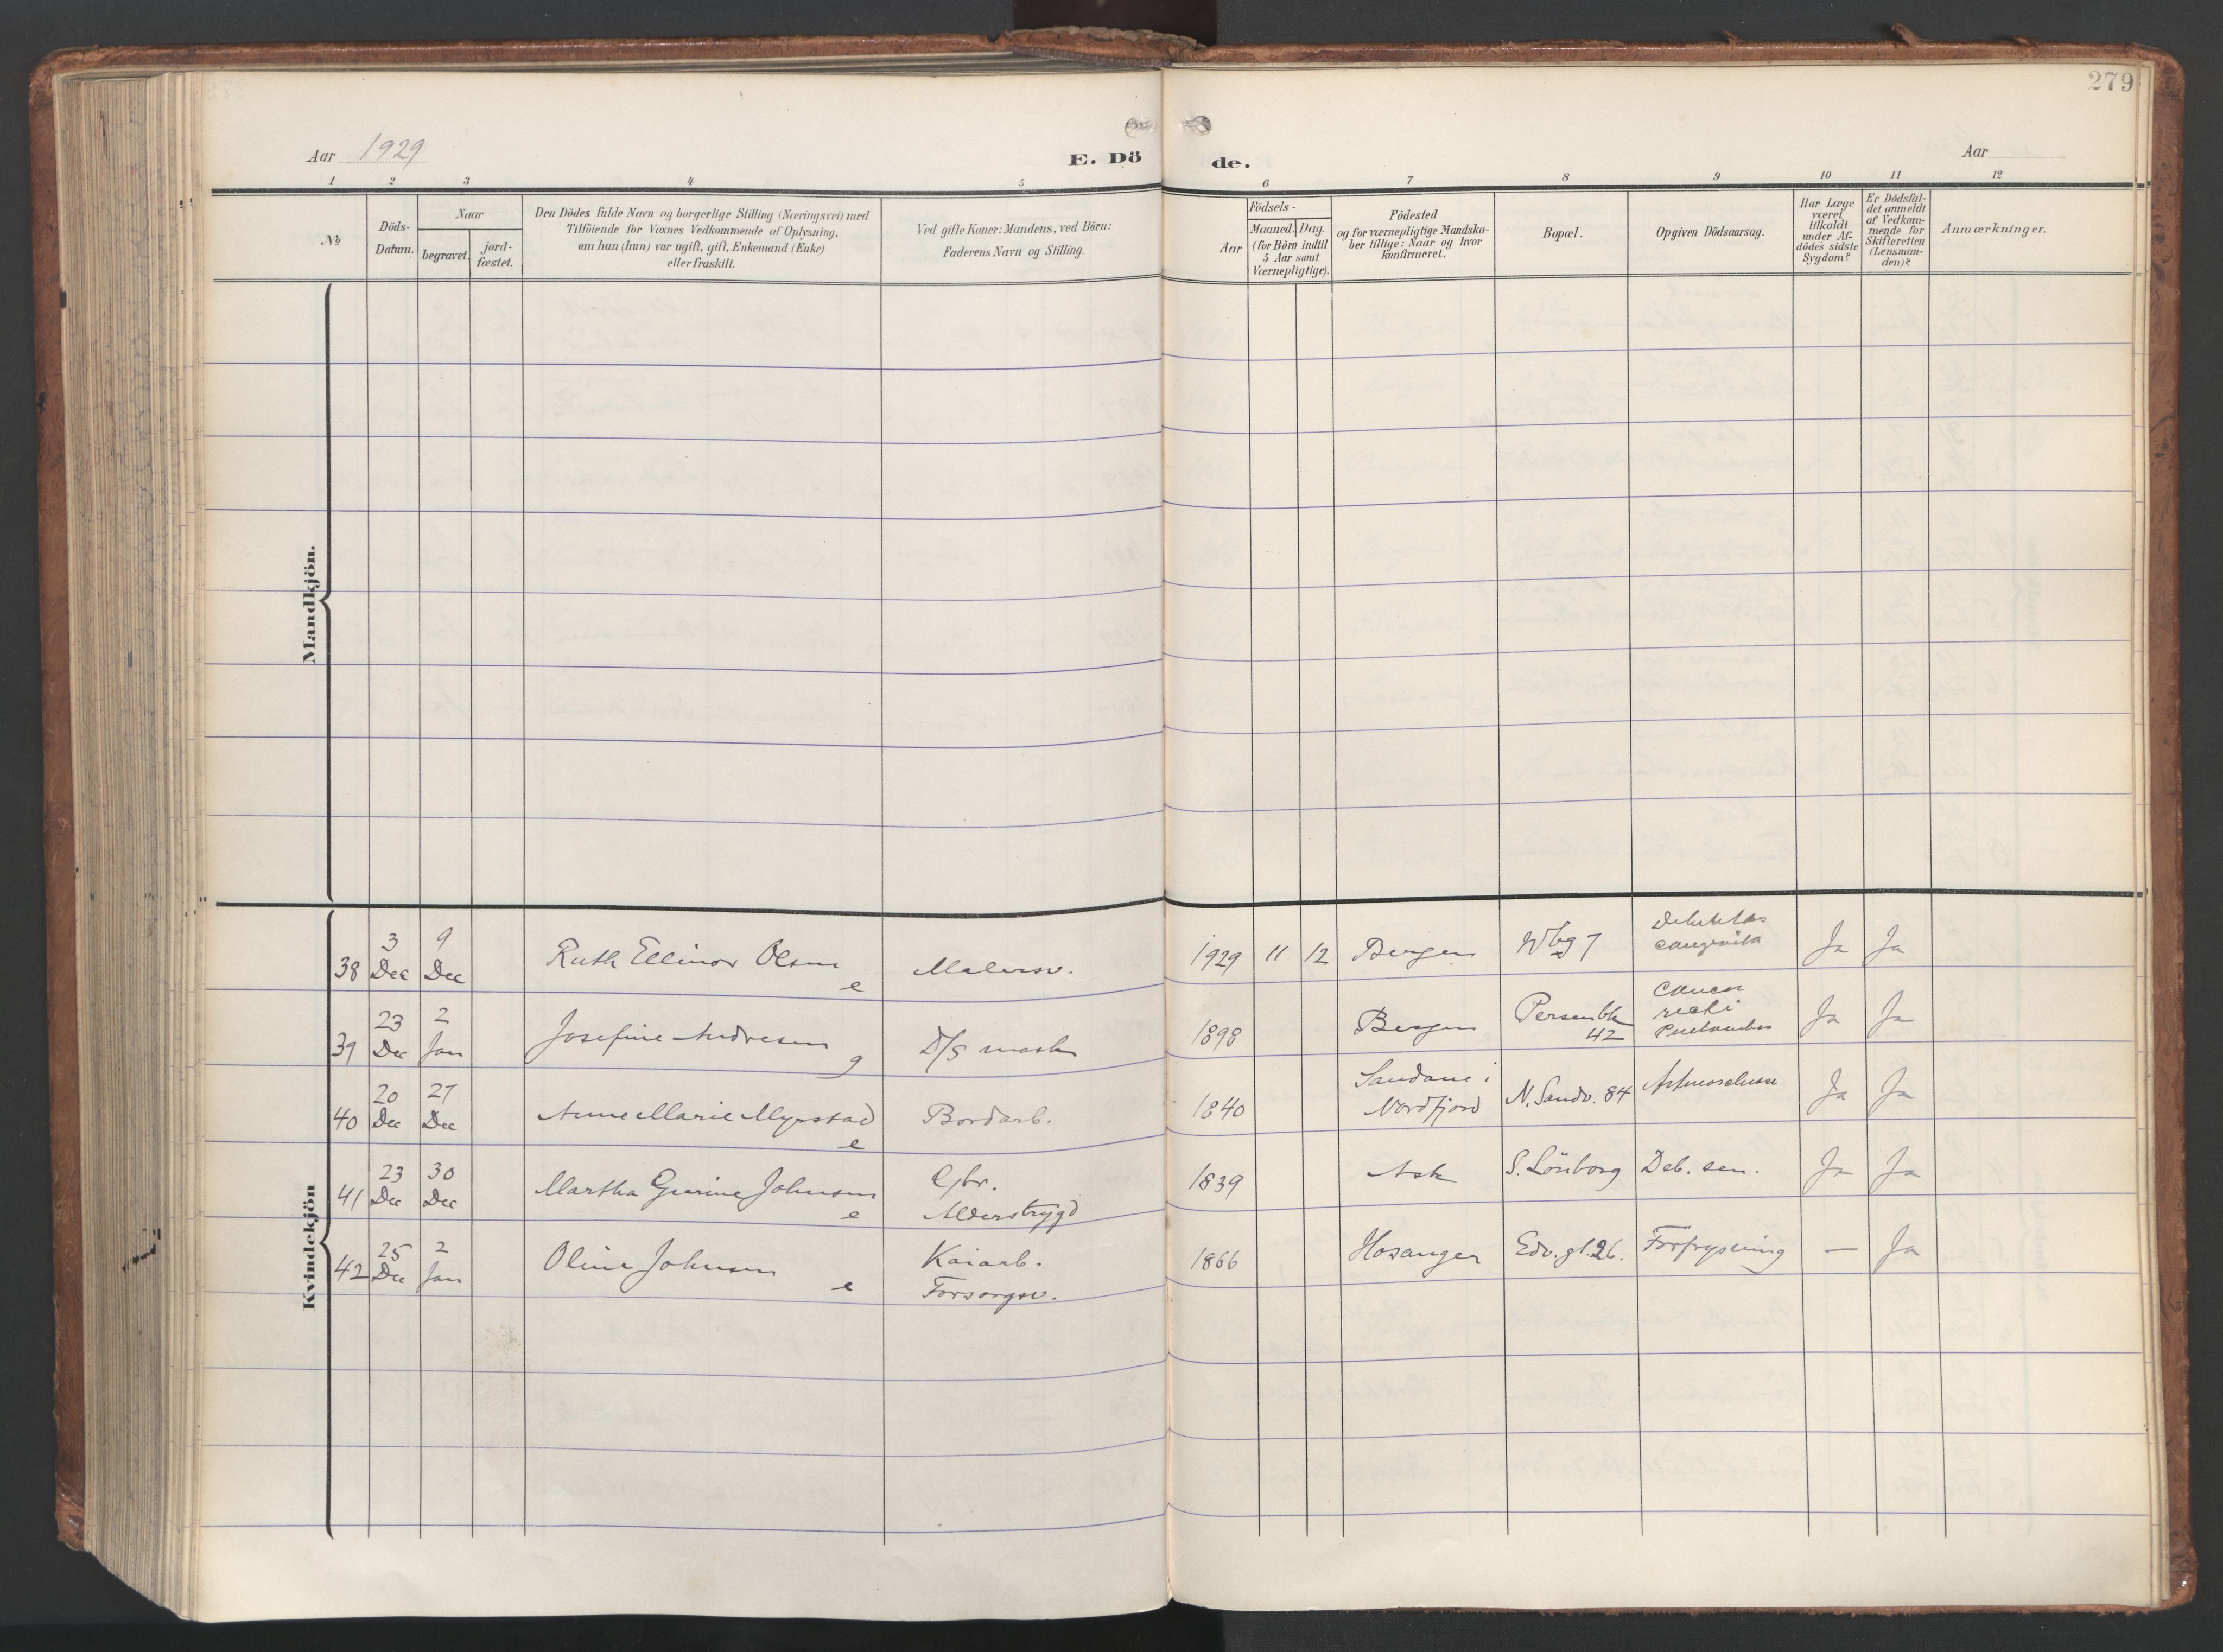 279
Aar 1929
E. Dö de.
Aar
1 2 3 4 5 6 7 8 9 10 11 12
№
Döds-
Datum.
Naar
begravet.
jord-
fæstet.
Den Dödes fulde Navn og borgerlige Stilling (Næringsvei) med
Tilföiende for Voxnes Vedkommende af Oplysning,
om han (hun) var ugift, gift, Enkemand (Enke)
eller fraskilt.
Ved gifte Koner: Mandens, ved Börn:
Faderens Navn og Stilling.
Aar
Födsels-
Maaned. Dag.
(for Börn indtil
5 Aar samt
Værnepligtige).
Födested
og for værnepligtige Mandska-
ber tillige: Naar og hvor
konfirmeret.
Bopæl.
Opgiven Dödsaarsag.
Har Læge
været
tilkaldt
under Af-
dödes sidste
Sygdom?
Er Dödsfal-
det anmeldt
af Vedkom-
mende for
Skifteretten
(Lensman-
den)?
Anmærkninger.
Mandkjön.
Kvindekjön
38 3 Dec 9 Dec Ruth Ellinor Olsen e Malersv. 1929 11 12 Bergen Wbg 7 Ja Ja
39 23 Dec 2 Jan Josefine Andresen g D/S mask 1898 Bergen Persenbk 42 Cancer recti Ja Ja
40 20 Dec 27 Dec Anne Marie Myrstad e Bordarb. 1840 Sandane i Nordfjord N. Sandv. 84 Ja Ja
41 23 Dec 30 Dec Martha Gurine Johnsen e Gbr. Alderstrygd 1839 Ask S. Lönborg Deb. sen. Ja Ja
42 25 Dec 2 Jan Oline Johnsen e Kaiarb. Forsorgsv. 1866 Hosanger Edv. gt. 26. Forfrysning — Ja